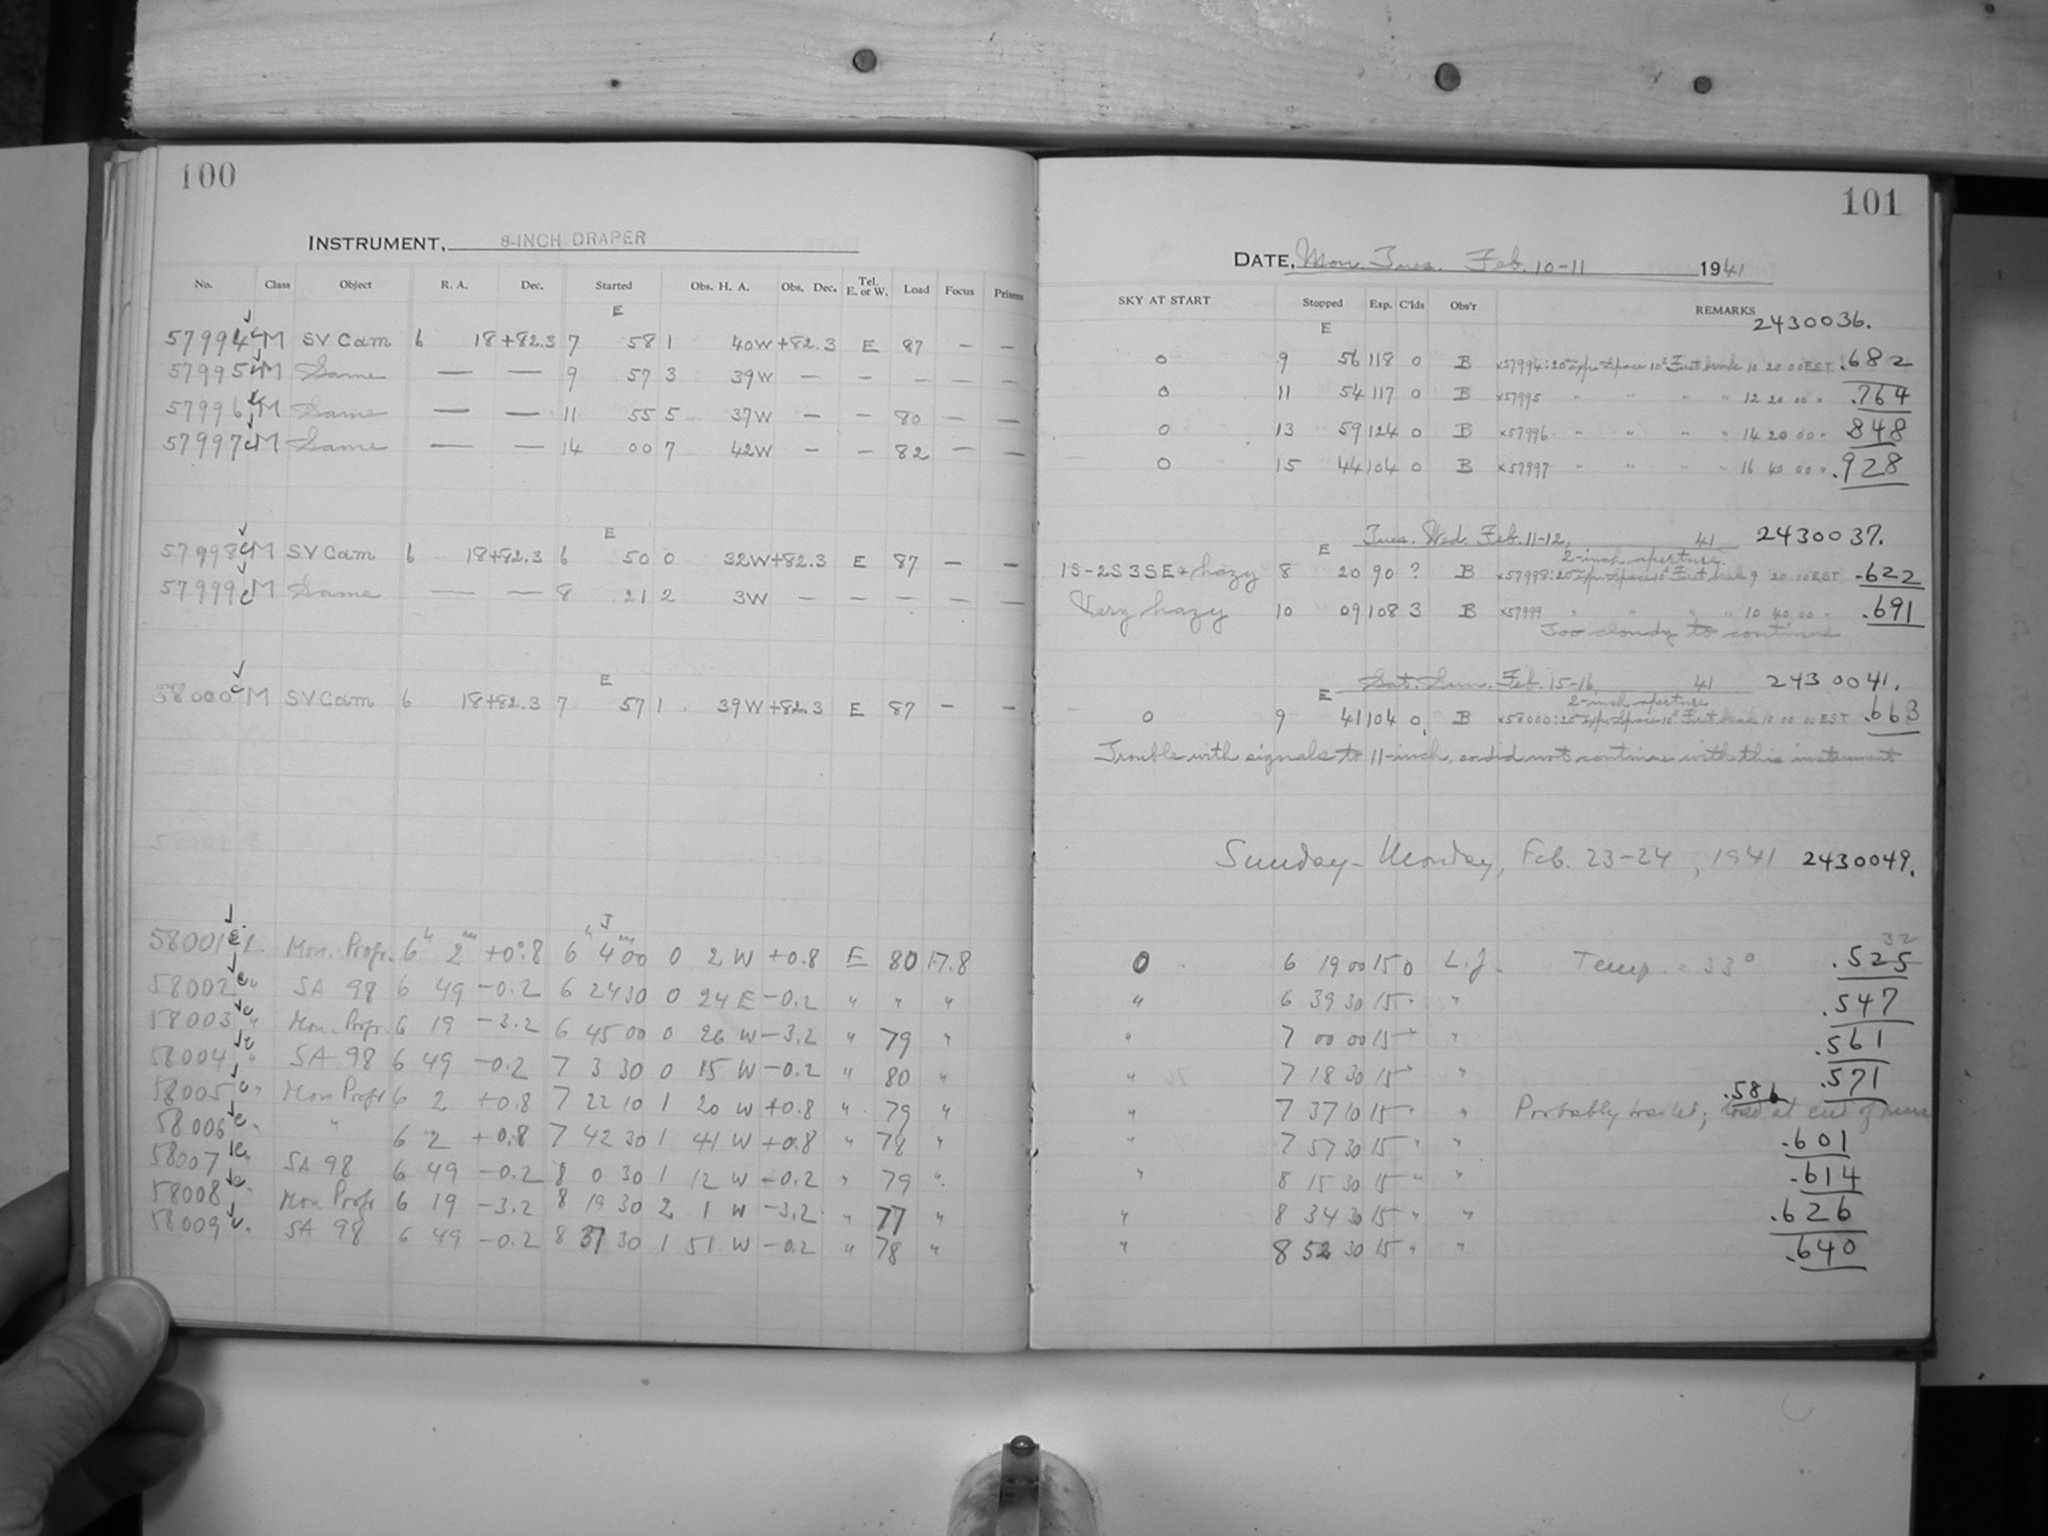 100
INSTRUMENT, 8-INCH DRAPER
No. Class Object R. A. Dec. Started Obs. H. A. Obs. Dec. Tel. E. or W. Load Focus Prisms
E
57994 M SV Cam 6 18 +82.3 7 58 1 40W +82.3 E 87 — —
57995 M Same — — 9 57 3 39W — — — — —
57996 M Same — — 11 55 5 37W — — 80 — —
57997 M Same — — 14 00 7 42W — — 82 — —
E
57998 M SV Cam 6 18 +82.3 6 50 0 32W +82.3 E 87 — —
57999 M Same — — 8 21 2 3W — — — — —
E
58000 M SV Cam 6 18 +82.3 7 57 1 39W +82.3 E 87 — —
J
58001 L. Mon. Profr. 6h 2m +0.8 6h 4m 00 0 2 W +0.8 E 80 17.8
58002 " SA 98 6 49 -0.2 6 24 30 0 24 E -0.2 " " "
58003 " Mon. Profr. 6 19 -3.2 6 45 00 0 26 W -3.2 " 79 "
58004 " SA 98 6 49 -0.2 7 3 30 0 15 W -0.2 " 80 "
58005 " Mon Profr 6 2 +0.8 7 22 10 1 20 W +0.8 " 79 "
58006 " " 6 2 +0.8 7 42 30 1 41 W +0.8 " 78 "
58007 " SA 98 6 49 -0.2 8 0 30 1 12 W -0.2 " 79 "
58008 " Mon Profr 6 19 -3.2 8 19 30 2 1 W -3.2 " 77 "
58009 " SA 98 6 49 -0.2 8 37 30 1 51 W -0.2 " 78 "
101
DATE, Mon. Tues. Feb. 10-11 1941
SKY AT START Stopped Exp. C'lds Obs'r REMARKS
E 2430036.
0 9 56 118 0 B x57994: 20 exp. Space 10s First break 10 20 00 EST .682
0 11 54 117 0 B x57995 " " " " 12 20 00 " .764
0 13 59 124 0 B x57996 " " " " 14 20 00 " .848
0 15 44 104 0 B x57997 " " " " 16 40 00 " .928
E Tues. Wed. Feb. 11-12, 41 2430037.
2-inch aperture
1S-2S3SE+hazy 8 20 90 ? B x57998: 20 exp. Space 10s First break 9 20 00 EST .622
Very hazy 10 09 108 3 B x57999 " " " " 10 40 00 " .691
Too cloudy to continue
E Sat. Sun. Feb. 15-16 41 2430041.
2-inch aperture
0 9 41 104 0 B x58000: 20 exp. Space 10s First break 10 00 00 EST .663
Trouble with signals to 11-inch, so did not continue with this instrument
Sunday - Monday, Feb. 23-24, 1941 2430049.
32
0 6 19 00 15 0 L.J. Temp. = 33° .525
" 6 39 30 15 " " .547
" 7 00 00 15 " " .561
" 7 18 30 15 " " .571
.586
" 7 37 10 15 " " Probably trailed; at end of
" 7 57 30 15 " " .601
" 8 15 30 15 " " .614
" 8 34 30 15 " " .626
" 8 52 30 15 " " .640